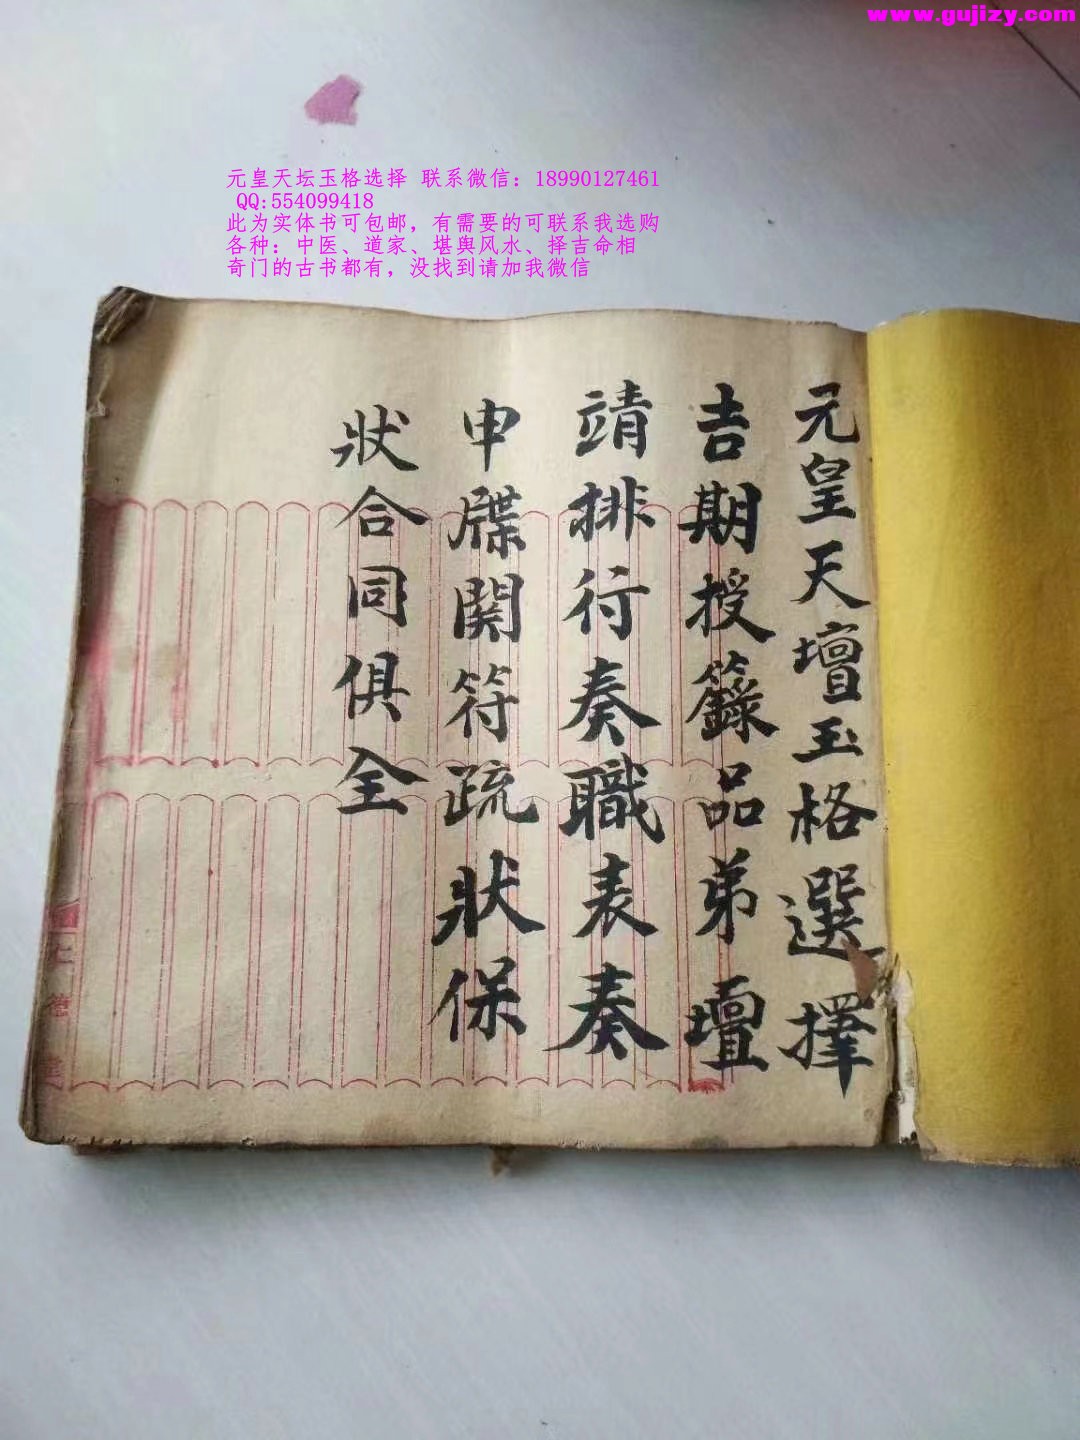 www.gujizy.com
元皇天坛玉格选择 联系微信：18990127461
QQ:554099418
此为实体书可包邮，有需要的可联系我选购
各种：中医、道家、堪舆风水、择吉命相
奇门的古书都有，没找到请加我微信
元皇天壇玉格選擇
吉期授籙品弟壇
靖排行奏職表奏
申牒関符疏狀保
狀合同俱全